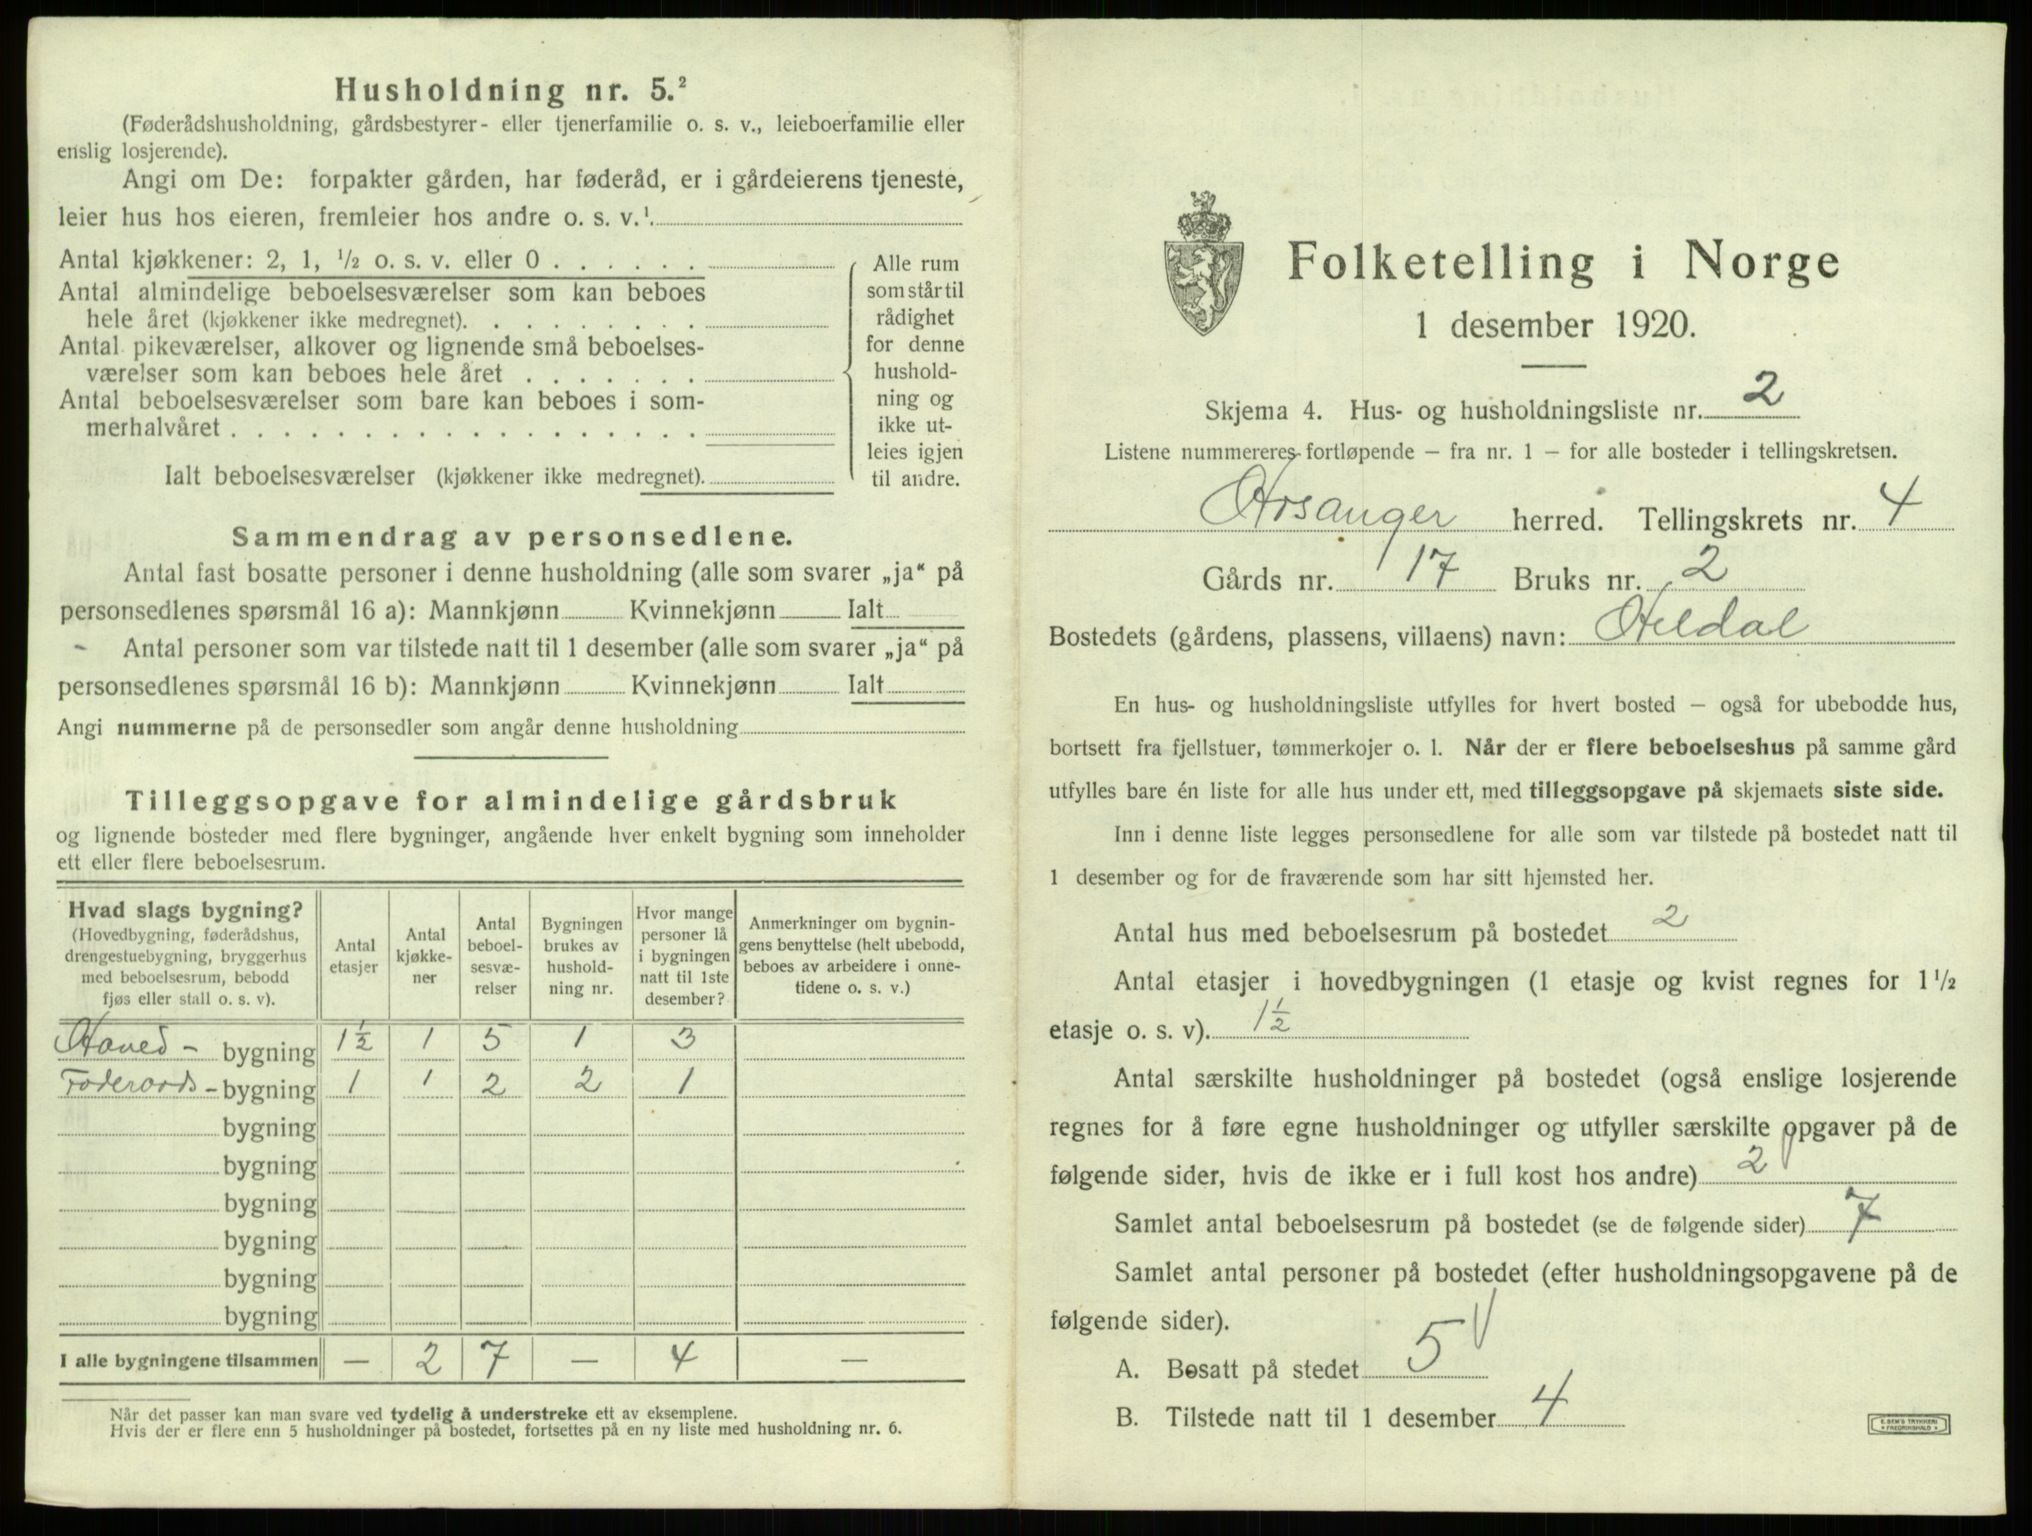 Husholdning nr. 5.²
(Føderådshusholdning, gårdsbestyrer- eller tjenerfamilie o. s. v., leieboerfamilie eller
enslig losjerende).
Angi om De: forpakter gården, har føderåd, er i gårdeierens tjeneste,
leier hus hos eieren, fremleier hos andre o. s. v.¹
Antal kjøkkener: 2, 1, ½ o. s. v. eller 0 . . . . . .
Antal almindelige beboelsesværelser som kan beboes
hele året (kjøkkener ikke medregnet). . . . . . . . .
Antal pikeværelser, alkover og lignende små beboelses-
værelser som kan beboes hele året . . . . . . .
Antal beboelsesværelser som bare kan beboes i som-
merhalvåret . . . . . . . . . . . . . . . . . .
Ialt beboelsesværelser (kjøkkener ikke medregnet).
Alle rum
som står til
rådighet
for denne
hushold-
ning og
ikke ut-
leies igjen
til andre.
Sammendrag av personsedlene.
Antal fast bosatte personer i denne husholdning (alle som svarer „ja“ på
personsedlenes spørsmål 16 a): Mannkjønn Kvinnekjønn Ialt
Antal personer som var tilstede natt til 1 desember (alle som svarer „ja“ på
personsedlenes spørsmål 16 b): Mannkjønn Kvinnekjønn Ialt
Angi nummerne på de personsedler som angår denne husholdning
Tilleggsopgave for almindelige gårdsbruk
og lignende bosteder med flere bygninger, angående hver enkelt bygning som inneholder
ett eller flere beboelsesrum.
Hvad slags bygning?
(Hovedbygning, føderådshus,
drengestuebygning, bryggerhus
med beboelsesrum, bebodd
fjøs eller stall o. s. v).
Antal
etasjer
Antal
kjøkke-
ner
Antal
beboel-
sesvæ-
relser
Bygningen
brukes av
hushold-
ning nr.
Hvor mange
personer lå
i bygningen
natt til 1ste
desember?
Anmerkninger om bygnin-
gens benyttelse (helt ubebodd,
beboes av arbeidere i onne-
tidene o. s. v.)
Hoved- bygning 1½ 1 5 1 3
Føderaads- bygning 1 1 2 2 1
bygning
bygning
bygning
bygning
bygning
bygning
I alle bygningene tilsammen — 2 7 — 4 —
Når det passer kan man svare ved tydelig å understreke ett av eksemplene.
Hvis der er flere enn 5 husholdninger på bostedet, fortsettes på en ny liste med husholdning nr. 6.
Folketelling i Norge
1 desember 1920.
Skjema 4. Hus- og husholdningsliste nr. 2
Listene nummereres fortløpende – fra nr. 1 – for alle bosteder i tellingskretsen.
Hosanger herred. Tellingskrets nr. 4
Gårds nr. 17 Bruks nr. 2
Bostedets (gårdens, plassens, villaens) navn: Heldal
En hus- og husholdningsliste utfylles for hvert bosted – også for ubebodde hus,
bortsett fra fjellstuer, tømmerkojer o. l. Når der er flere beboelseshus på samme gård
utfylles bare én liste for alle hus under ett, med tilleggsopgave på skjemaets siste side.
Inn i denne liste legges personsedlene for alle som var tilstede på bostedet natt til
1 desember og for de fraværende som har sitt hjemsted her.
Antal hus med beboelsesrum på bostedet 2
Antal etasjer i hovedbygningen (1 etasje og kvist regnes for 1½
etasje o. s. v). 1½
Antal særskilte husholdninger på bostedet (også enslige losjerende
regnes for å føre egne husholdninger og utfyller særskilte opgaver på de
følgende sider, hvis de ikke er i full kost hos andre) 2
Samlet antal beboelsesrum på bostedet (se de følgende sider) 7
Samlet antal personer på bostedet (efter husholdningsopgavene på de
følgende sider).
A. Bosatt på stedet 5
B. Tilstede natt til 1 desember 4
E. SEM'S TRYKKERI
FREDRIKSHALD